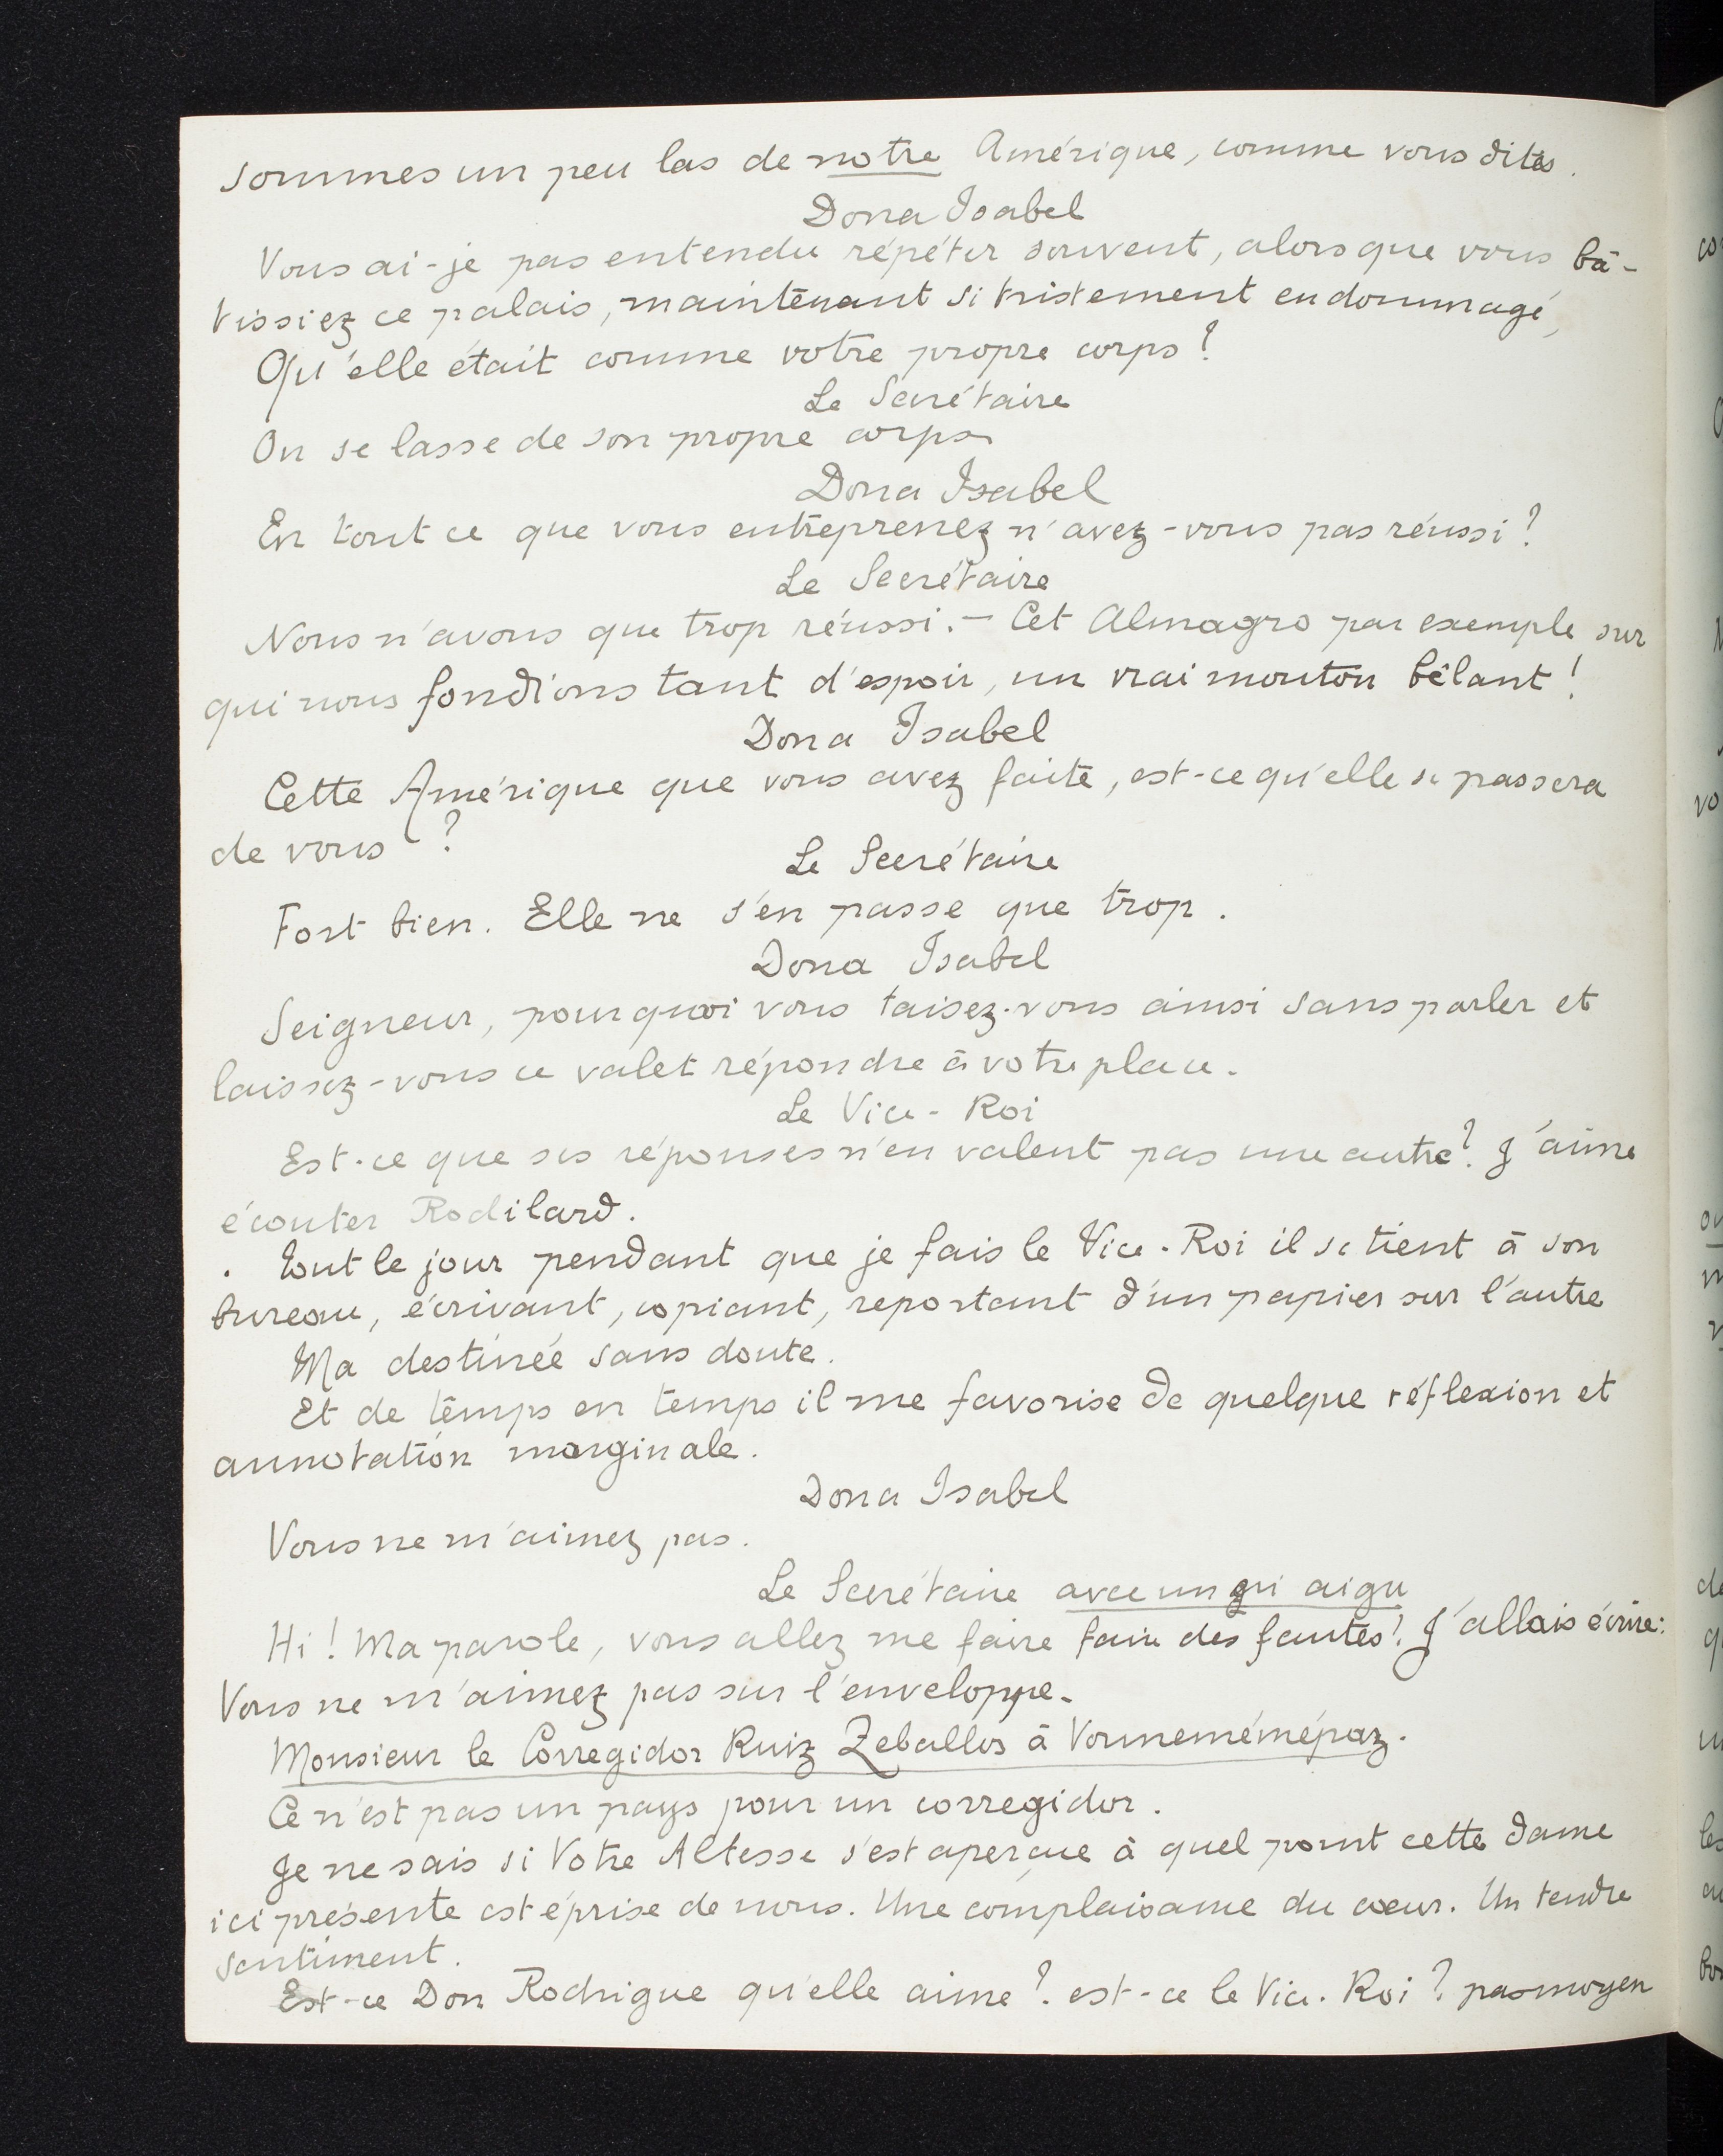 sommes un peu las de notre Amérique, comme vous dites.
Dona Isabel
Vous ai-je pas entendu répéter souvent, alors que vous bâ-
tissiez ce palais, maintenant si tristement endommagé,
Qu'elle était comme votre propre corps ?
Le Secrétaire
On se lasse de son propre corps
Dona Isabel
En tout ce que vous entreprenez n'avez-vous pas réussi ?
Le Secrétaire
Nous n'avons que trop réussi. — Cet Almagro par exemple sur
qui nous fondions tant d'espoir, un vrai mouton bêlant !
Dona Isabel
Cette Amérique que vous avez faite, est-ce qu'elle se passera
de vous ?
Le Secrétaire
Fort bien. Elle ne s'en passe que trop.
Dona Isabel
Seigneur, pourquoi vous taisez-vous ainsi sans parler et
laissez-vous ce valet répondre à votre place.
Le Vice-Roi
Est-ce que ses réponses n'en valent pas une autre ? J'aime
écouter Rodilard.
. Tout le jour pendant que je fais le Vice-Roi il se tient à son
bureau, écrivant, copiant, reportant d'un papier sur l'autre
Ma destinée sans doute.
Et de temps en temps il me favorise de quelque réflexion et
annotation marginale.
Dona Isabel
Vous ne m'aimez pas.
Le Secrétaire avec un cri aigu
Hi ! Ma parole, vous allez me faire faire des fautes ! J'allais écrire :
Vous ne m'aimez pas sur l'enveloppe.
Monsieur le Corregidor Ruiz Zeballos à Vounemémépaz.
Ce n'est pas un pays pour un corregidor.
Je ne sais si Votre Altesse s'est aperçue à quel point cette dame
ici présente est éprise de nous. Une complaisance du cœur. Un tendre
sentiment.
Est-ce Don Rodrigue qu'elle aime ? est-ce le Vice-Roi ? pas moyen